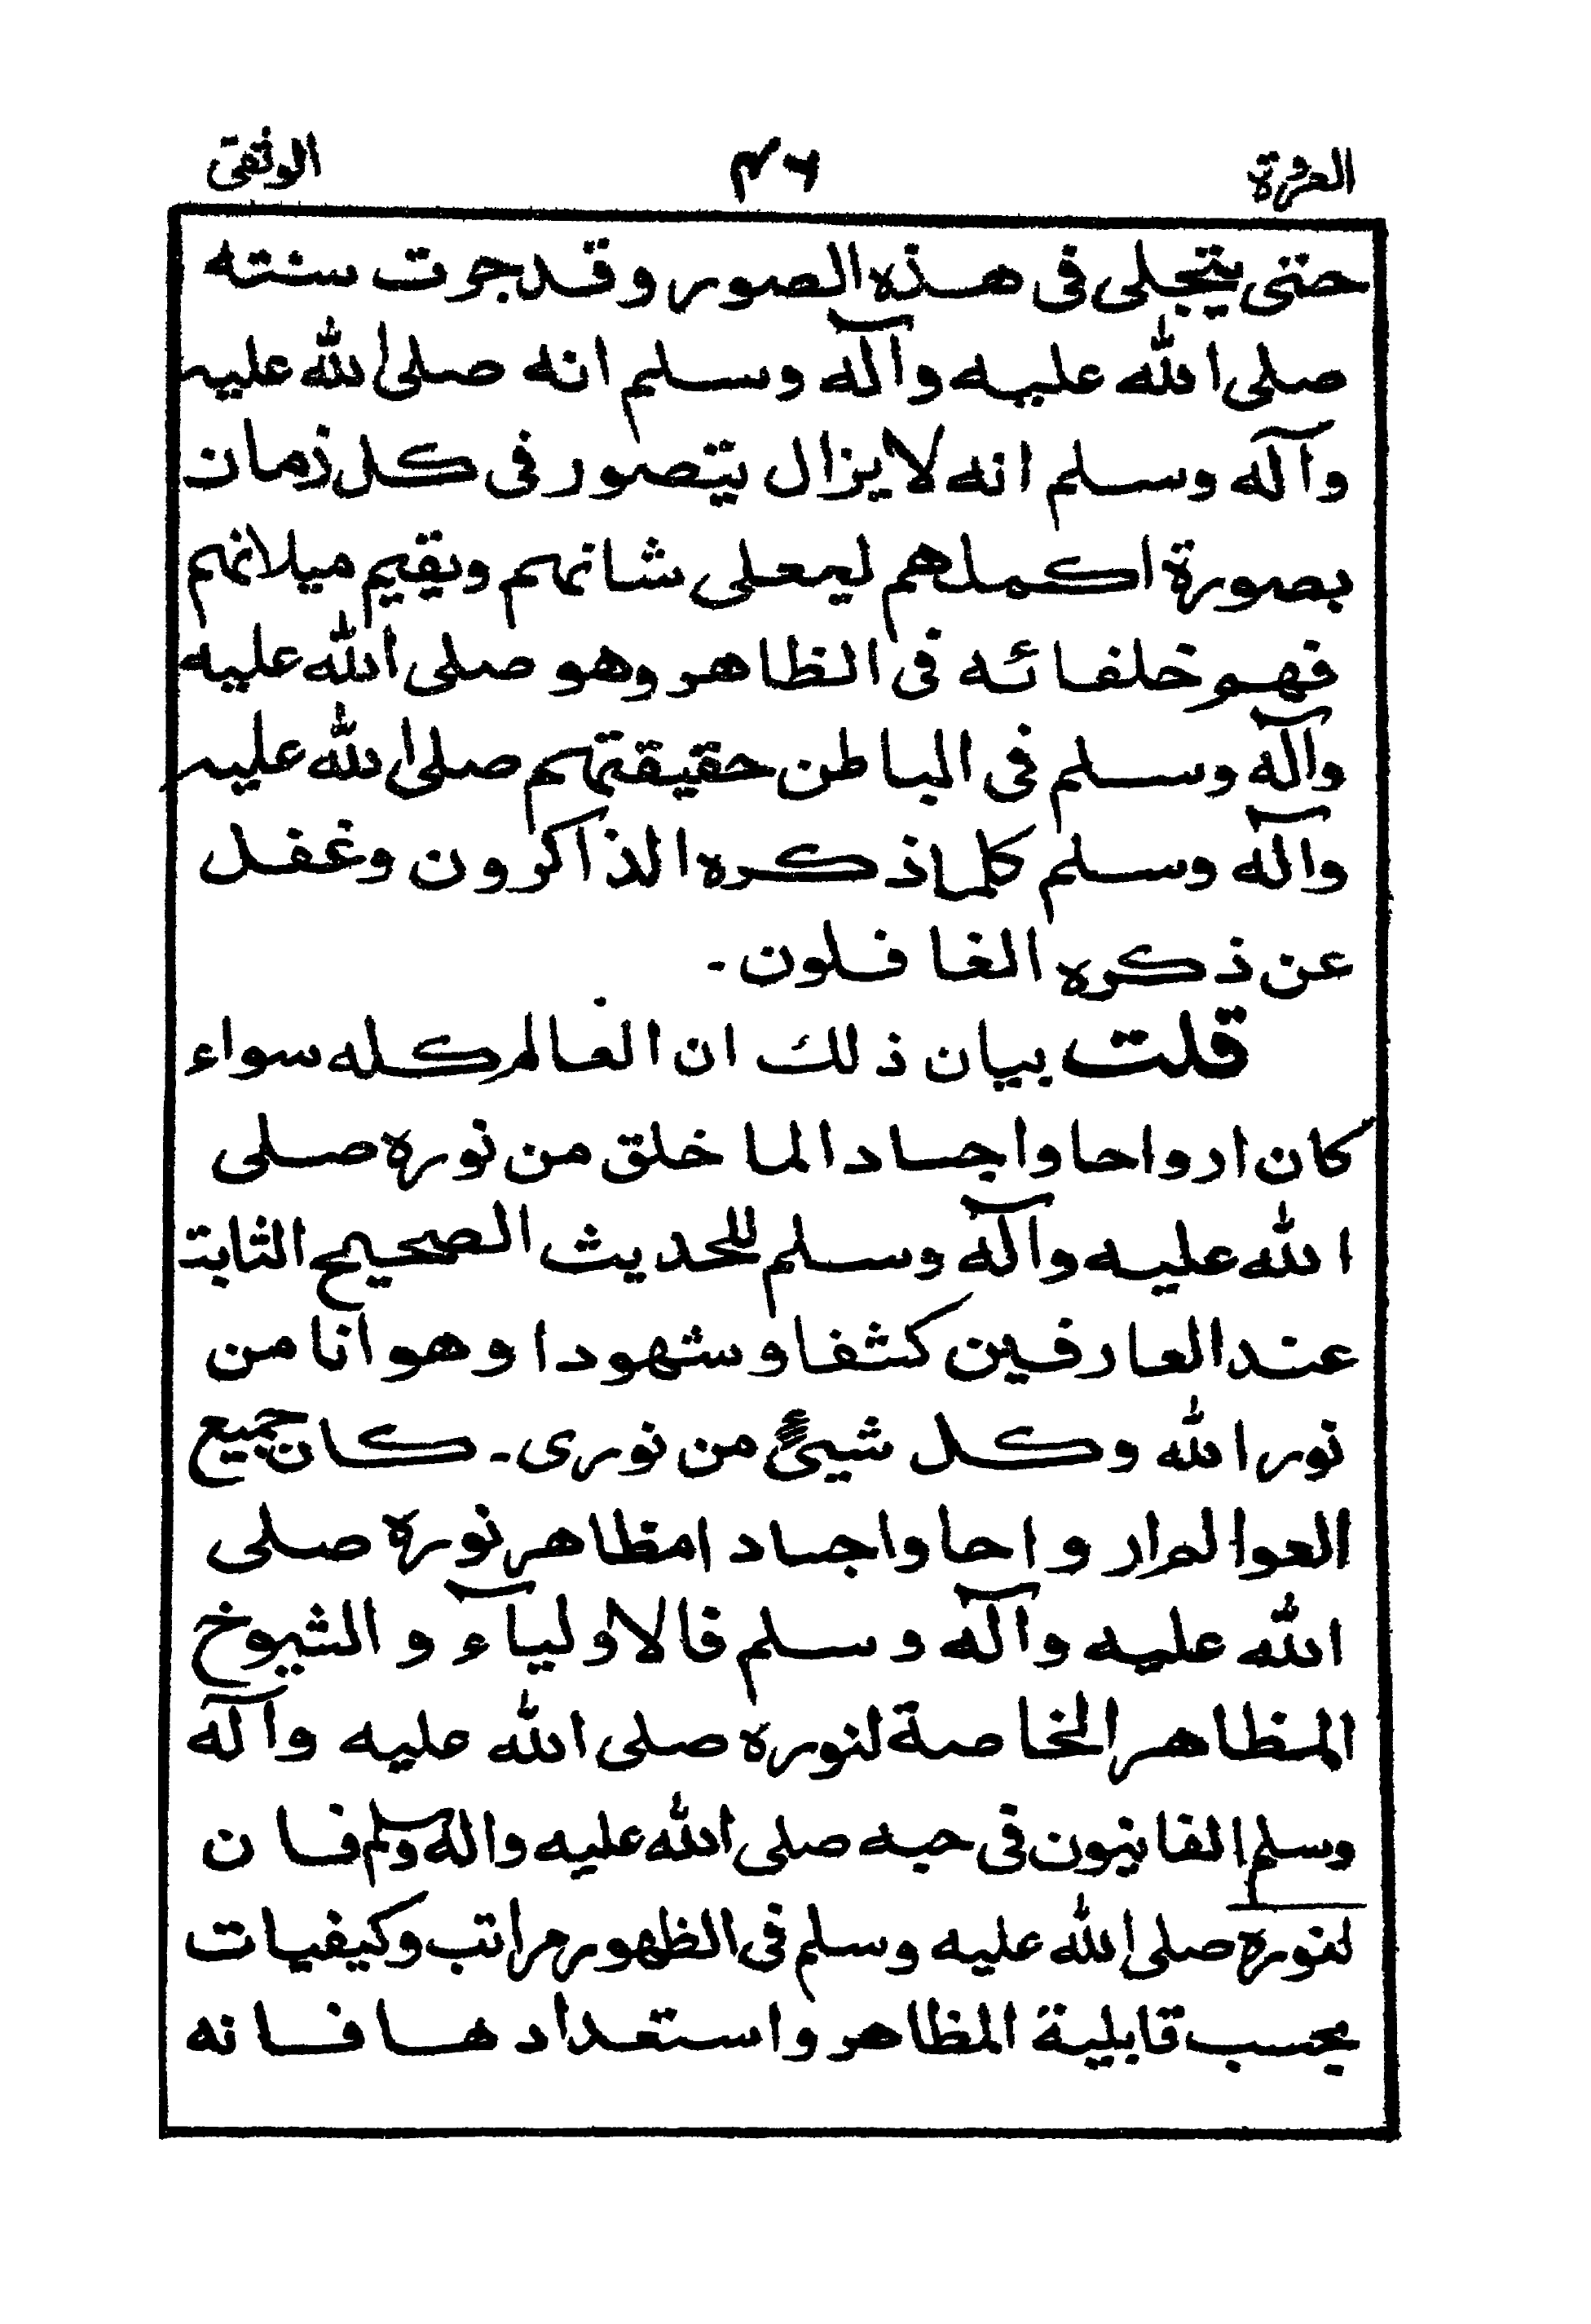 العروة ٤٦ الوثقى
حتى يتجلى فى هذه الصور وقد جرت سنته
صلى الله عليه وآله وسلم انه صلى الله عليه
وآله وسلم انه لا يزال يتصور فى كل زمان
بصورة اكملهم ليعلى شانهم ويقيم ميلانهم
فهم خلفائه فى الظاهر وهو صلى الله عليه
وآله وسلم فى الباطن حقيقتهم صلى الله عليه
وآله وسلم كلما ذكره الذاكرون وغفل
عن ذكره الغافلون -
قلت بيان ذلك ان العالم كله سواء
كان ارواحا واجسادا لما خلق من نوره صلى
الله عليه وآله وسلم للحديث الصحيح الثابت
عند العارفين كشفا وشهودا وهو انا من
نور الله وكل شيئ من نورى - كان جميع
العوالم ارواحا واجسادا مظاهر نوره صلى
الله عليه وآله وسلم فالاوليآء والشيوخ
المظاهر الخاصة لنوره صلى الله عليه وآله
وسلم الفانيون فى حبه صلى الله عليه واله وسلم فان
لنوره صلى الله عليه وسلم فى الظهور مراتب وكيفيات
بحسب قابلية المظاهر واستعدادها فانه